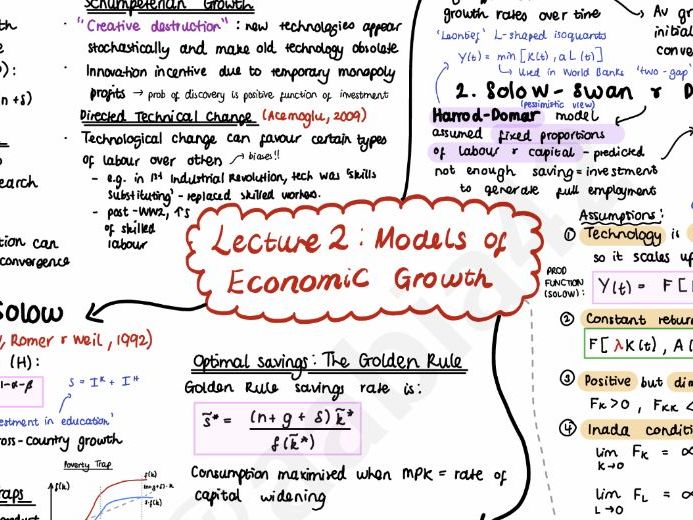 Schumpeterian Growth
"Creative destruction" : new technologies appear
stochastically and make old technology obsolete
· Innovation incentive due to temporary monopoly
profits → prob of discovery is positive function of investment
Directed Technical Change (Acemoglu, 2009)
· Technological change can favour certain types
of labour over others → biases!!
- e.g. in 1st Industrial Revolution, tech was 'skills
substituting' - replaced skilled workers.
- post-WW2, ↑s
of skilled
labour
th
):
n+δ)
earch
tion can
convergence
growth rates over time
'Leontief' L-shaped isoquants
Y(t) = min [K(t), aL(t)]
↳ Used in World Banks 'two-gap'
→ Av gr
initial
conve
2. Solow-Swan & D
(pessimistic view)
Harrod-Domar model
assumed fixed proportions
of labour & capital - predicted
not enough saving = investment
to generate full employment
Assumptions:
① Technology is
so it scales up
PROD
FUNCTION
(SOLOW):
Y(t) = F[
② Constant return
F[λK(t), A(
③ Positive but dim
FK>0, FKK <
④ Inada conditi
lim FK = ∞
K→0
lim FL = ∞
L→0
Lecture 2: Models of
Economic Growth
Solow
, Romer & Weil, 1992)
(H):
1-α-β
S = IK + IH
estment in education'
ross-country growth
Poverty Trap
f(k)
f(k)
(n+g+δ)·k
s·f(k)
raps
product
Optimal savings: The Golden Rule
Golden Rule savings rate is:
s̃* = (n+g+δ)k̃*
f(k̃*)
Consumption maximised when MPK = rate of
capital widening